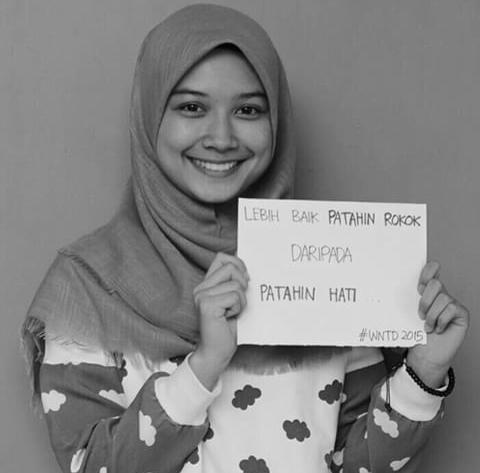 LEBIH BAIK PATAHIN ROKOK
DARIPADA
PATAHIN HATI ...
#WNTD 2015